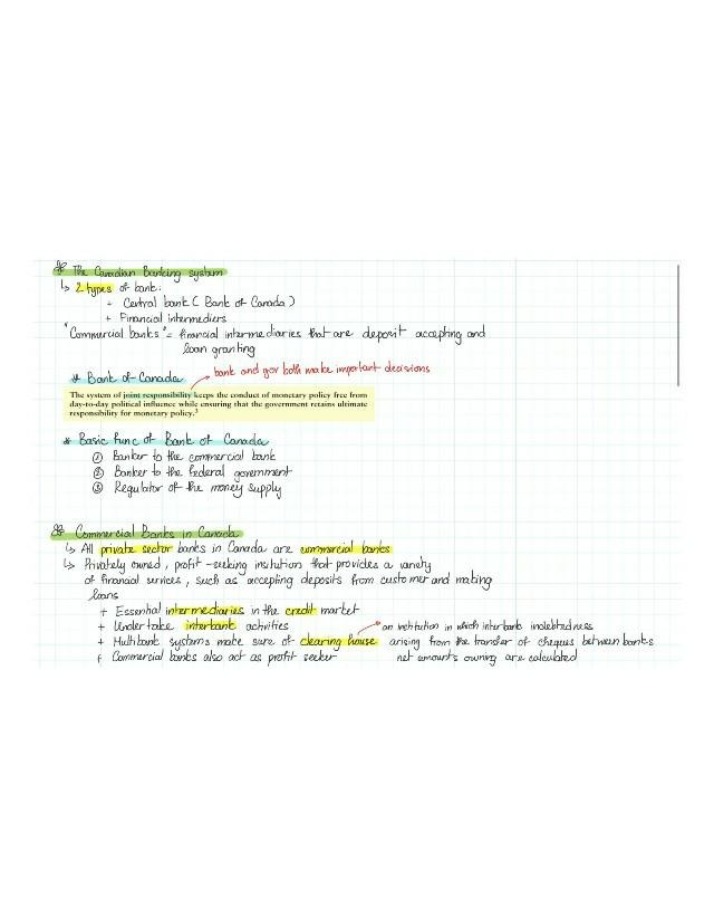 * The Canadian Banking system
↳ 2 types of bank:
+ Central bank ( Bank of Canada )
+ Financial intermediers
"Commercial banks" = financial intermediaries that are deposit accepting and
loan granting
* Bank of Canada → bank and gov both make important decisions
The system of joint responsibility keeps the conduct of monetary policy free from
day-to-day political influence while ensuring that the government retains ultimate
responsibility for monetary policy.³
* Basic func of Bank of Canada
① Banker to the commercial bank
② Banker to the federal government
③ Regulator of the money supply
Commercial Banks in Canada
↳ All private sector banks in Canada are commercial banks
↳ Privately owned, profit-seeking institution that provides a variety
of financial services, such as accepting deposits from customer and making
loans
+ Essential intermediaries in the credit market
+ Undertake interbank activities → an institution in which interbank indebtedness
+ Multibank systems make sure of clearing house arising from the transfer of cheques between banks
+ Commercial banks also act as profit seeker net amounts owning are calculated